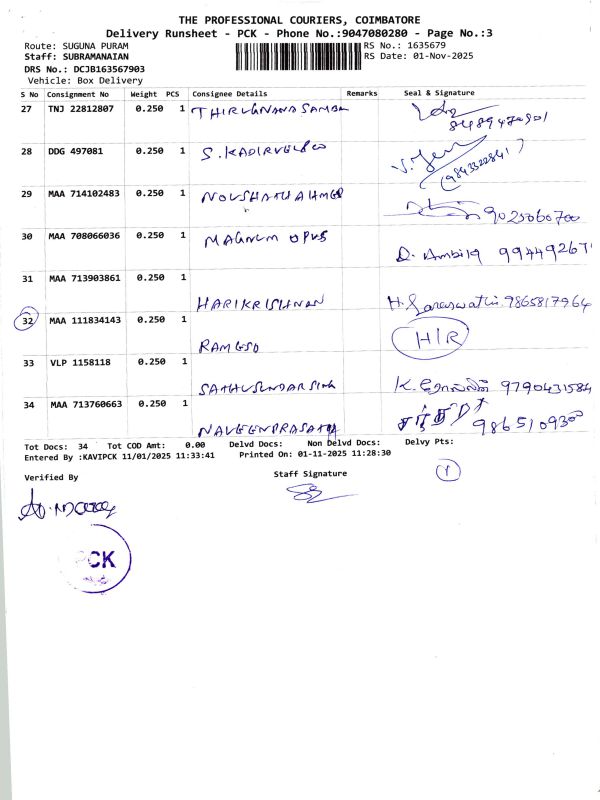 THE PROFESSIONAL COURIERS, COIMBATORE
Delivery Runsheet - PCK - Phone No.:9047080280 - Page No.:3
Route: SUGUNA PURAM RS No.: 1635679
Staff: SUBRAMANAIAN RS Date: 01-Nov-2025
DRS No.: DCJB163567903
Vehicle: Box Delivery
S No Consignment No Weight PCS Consignee Details Remarks Seal & Signature
27 TNJ 22812807 0.250 1
28 DDG 497081 0.250 1 (9843322841)
29 MAA 714102483 0.250 1 NOUSHATH AHMED 9025060700
30 MAA 708066036 0.250 1 MAGNUM OPUS
31 MAA 713903861 0.250 1 HARIKRISHNAN H. Saraswathi. 9865817964
32 MAA 111834143 0.250 1 H/R
33 VLP 1158118 0.250 1 9790431584
34 MAA 713760663 0.250 1 NAVEENPRASATH
Tot Docs: 34 Tot COD Amt: 0.00 Delvd Docs: Non Delvd Docs: Delvy Pts:
Entered By :KAVIPCK 11/01/2025 11:33:41 Printed On: 01-11-2025 11:28:30
Verified By Staff Signature 1
PCK